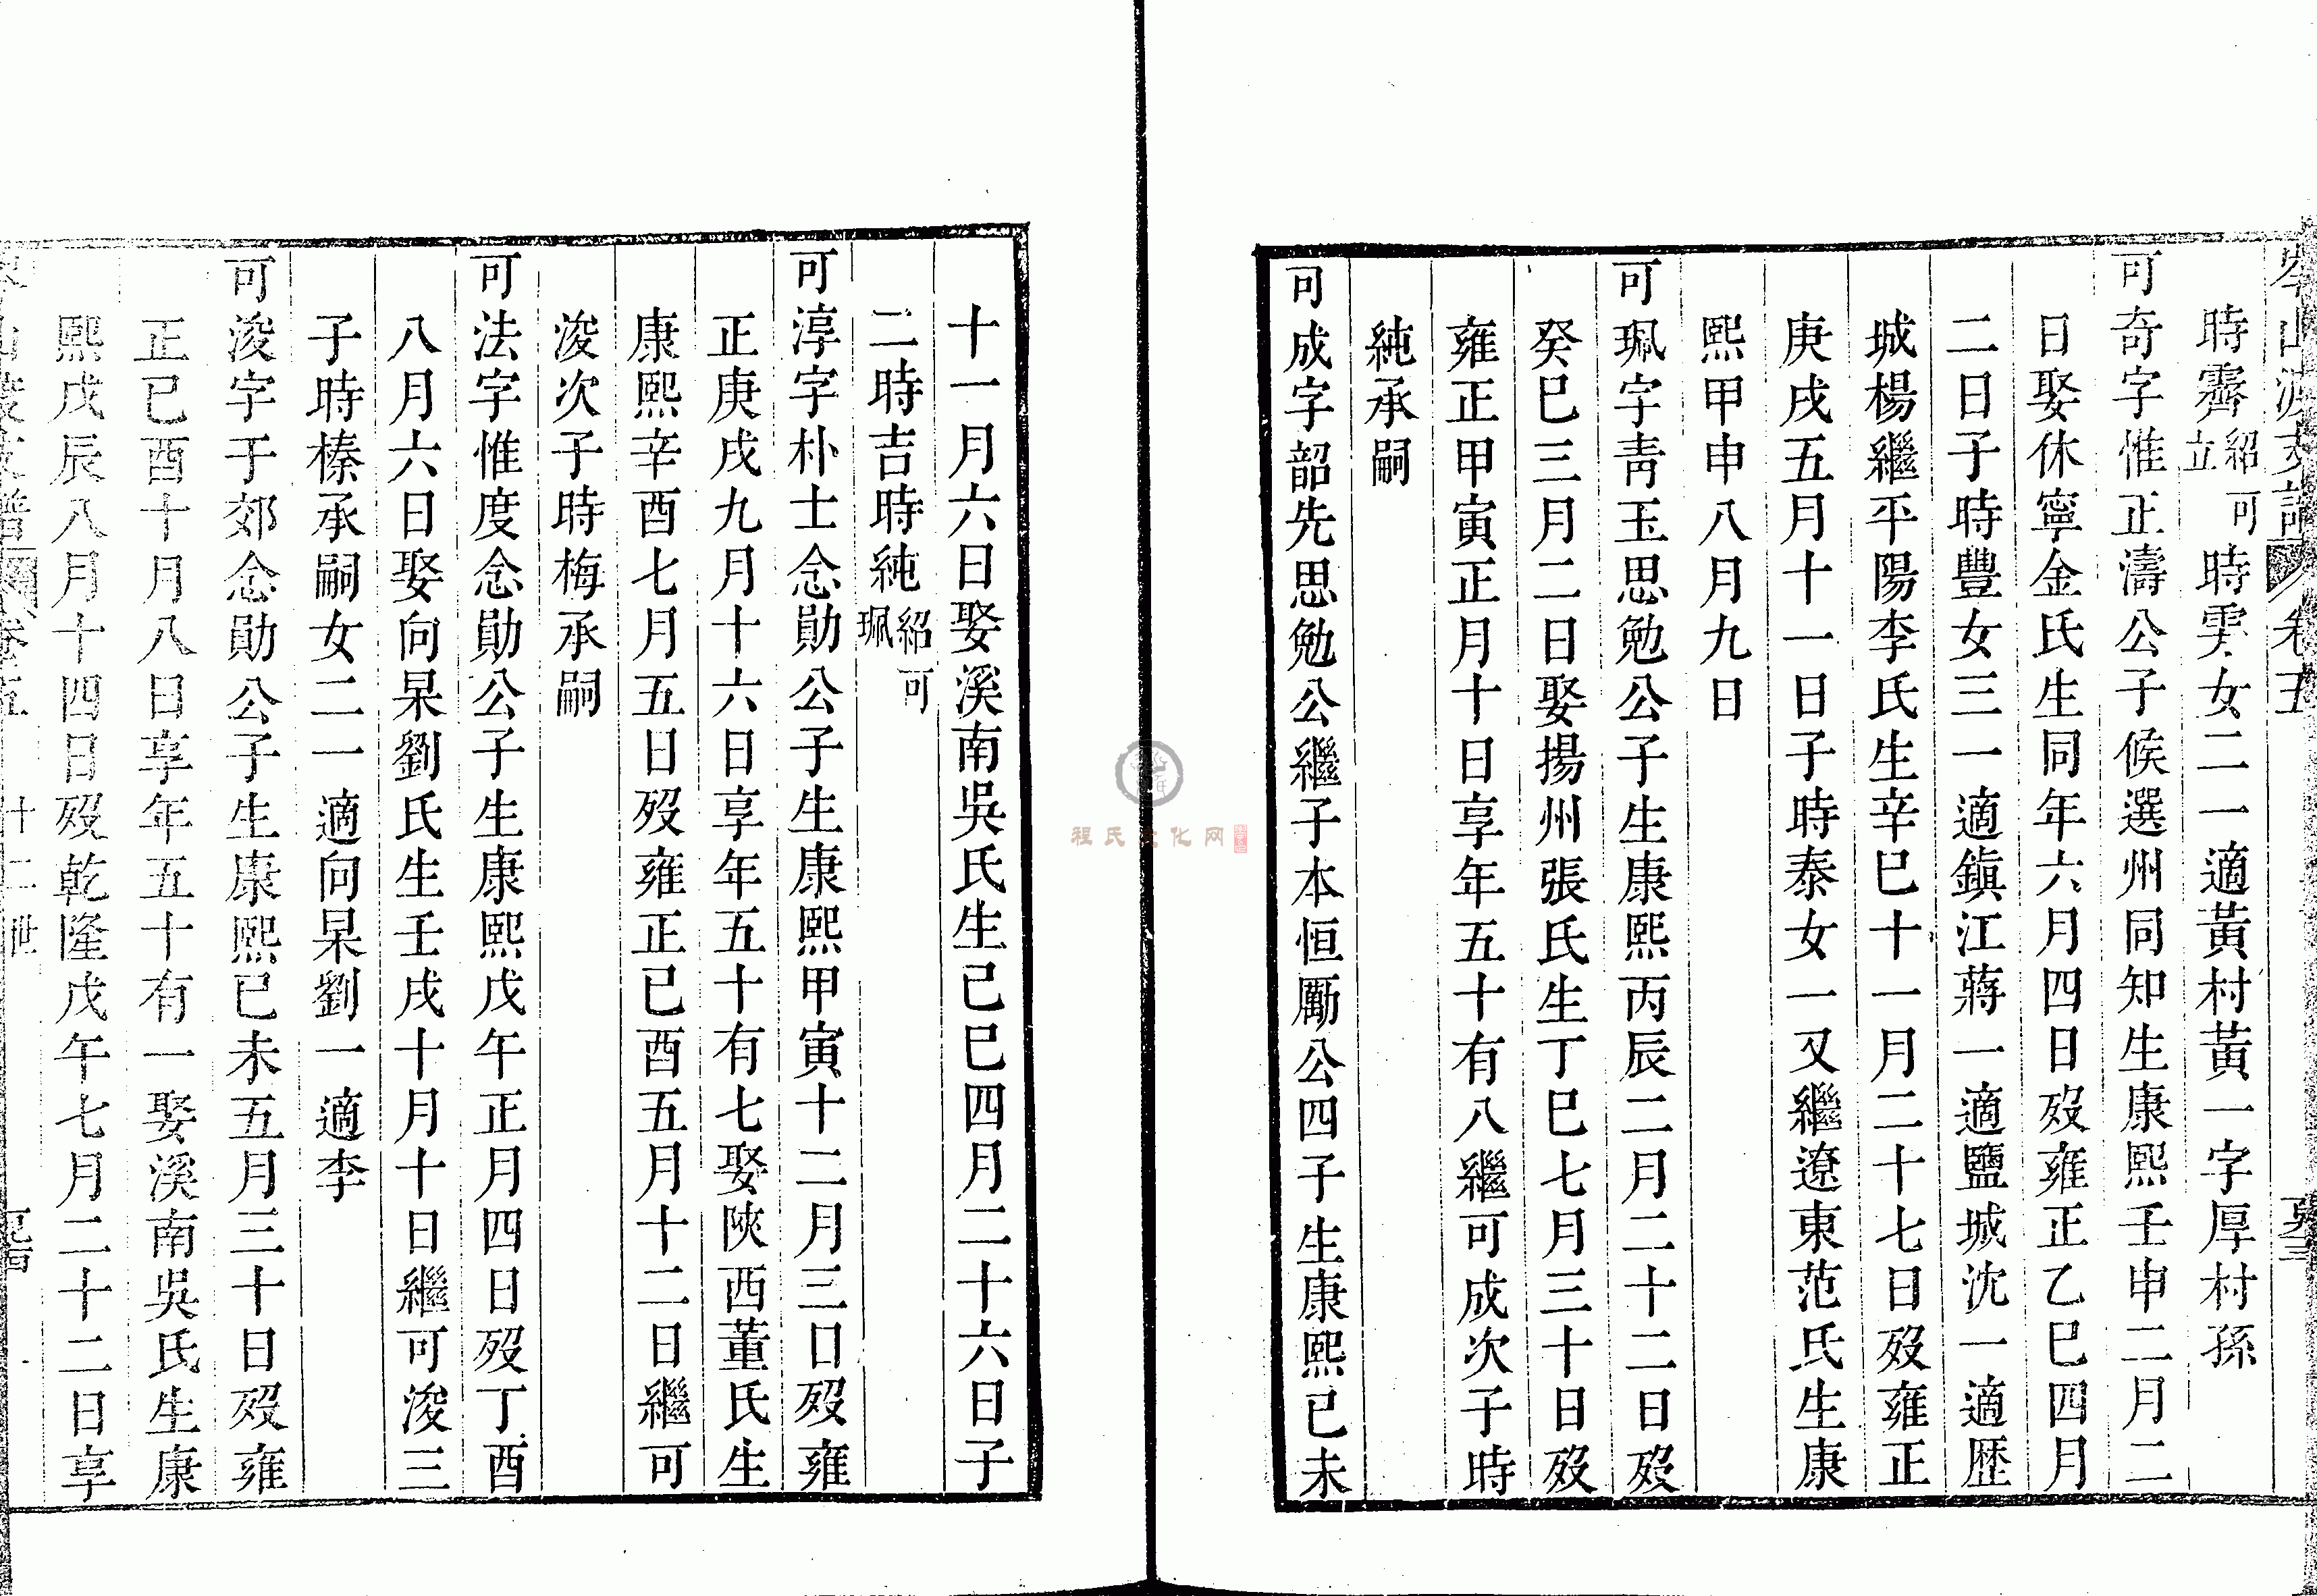 岑山渡支譜 卷五
時霽紹可立時雯女二一適黃村黃一字厚村孫
可奇字惟正濤公子候選州同知生康熙壬申二月二
日娶休寧金氏生同年六月四日歿雍正乙巳四月
二日子時豐女三一適鎮江蔣一適鹽城沈一適歷
城楊繼平陽李氏生辛巳十一月二十七日歿雍正
庚戌五月十一日子時泰女一又繼遼東范氏生康
熙甲申八月九日
可珮字靑玉思勉公子生康熙丙辰二月二十二日歿
癸巳三月二日娶揚州張氏生丁巳七月三十日歿
雍正甲寅正月十日享年五十有八繼可成次子時
純承嗣
可成字韶先思勉公繼子本恒勵公四子生康熙已未
十一月六日娶溪南吳氏生已巳四月二十六日子
二時吉時純紹可珮
可淳字朴士念勛公子生康熙甲寅十二月三口歿雍
正庚戌九月十六日享年五十有七娶陝西董氏生
康熙辛酉七月五日歿雍正已酉五月十二日繼可
浚次子時梅承嗣
可法字惟度念勛公子生康熙戊午正月四日歿丁酉
八月六日娶向杲劉氏生壬戌十月十日繼可浚三
子時榛承嗣女二一適向杲劉一適李
可浚字于郊念勛公子生康熙已未五月三十日歿雍
正已酉十月八日享年五十有一娶溪南吳氏生康
熙戊辰八月十四日歿乾隆戊午七月二十二日享
岑山渡支譜 卷五 十二世
程氏文化网